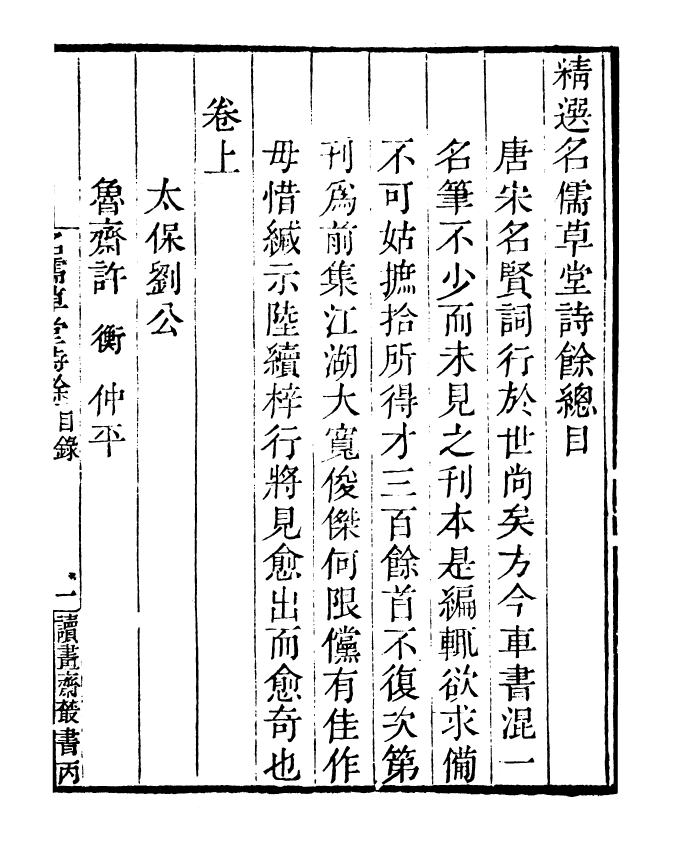 精選名儒草堂詩餘總目
唐宋名賢詞行於世尚矣方今車書混一
名筆不少而未見之刊本是編輒欲求備
不可姑摭拾所得才三百餘首不復次第
刊爲前集江湖大寬俊傑何限儻有佳作
毋惜緘示陸續梓行將見愈出而愈奇也
卷上
太保劉公
魯齋許衡仲平
名儒草堂詩餘目錄 一 讀畫齋叢書丙